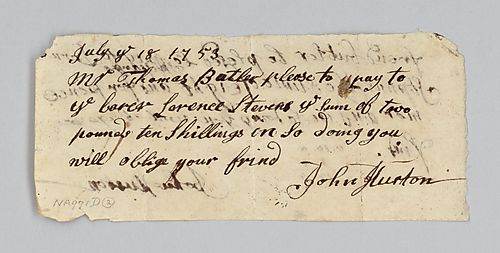 July yͤ 18 1753
Mr Thomas Butler please to pay to
yͤ barer Lorence Stevens yͤ sum of two
pounds ten Shillings in So doing you
will oblige your frind
John Huston
NA991D(3)